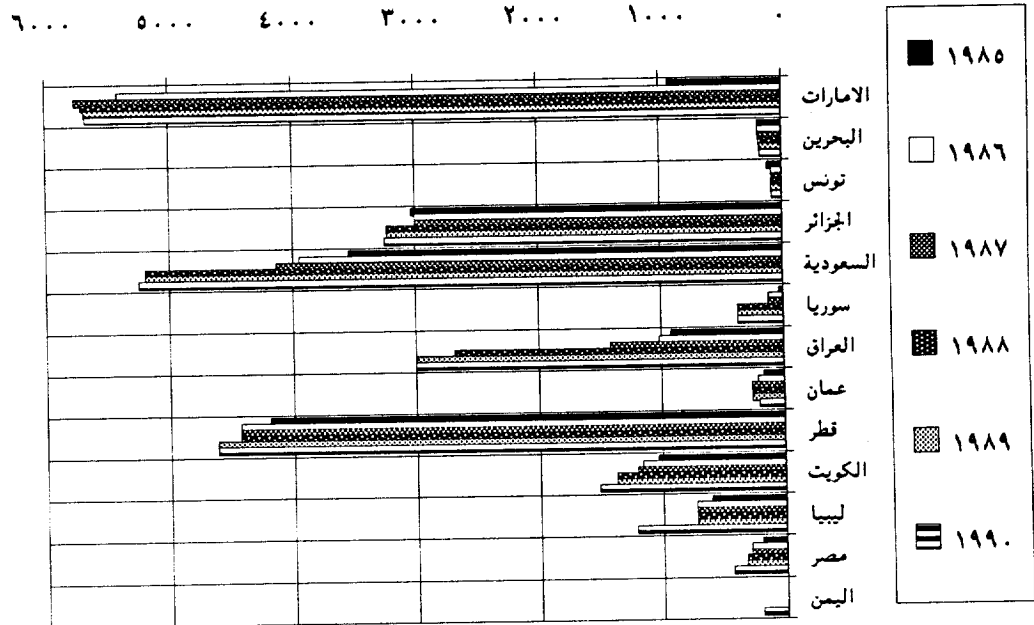 ٦٠٠٠ ٥٠٠٠ ٤٠٠٠ ٣٠٠٠ ٢٠٠٠ ١٠٠٠ ٠
الامارات
البحرين
تونس
الجزائر
السعودية
سوريا
العراق
عمان
قطر
الكويت
ليبيا
مصر
اليمن
١٩٨٥
١٩٨٦
١٩٨٧
١٩٨٨
١٩٨٩
١٩٩٠